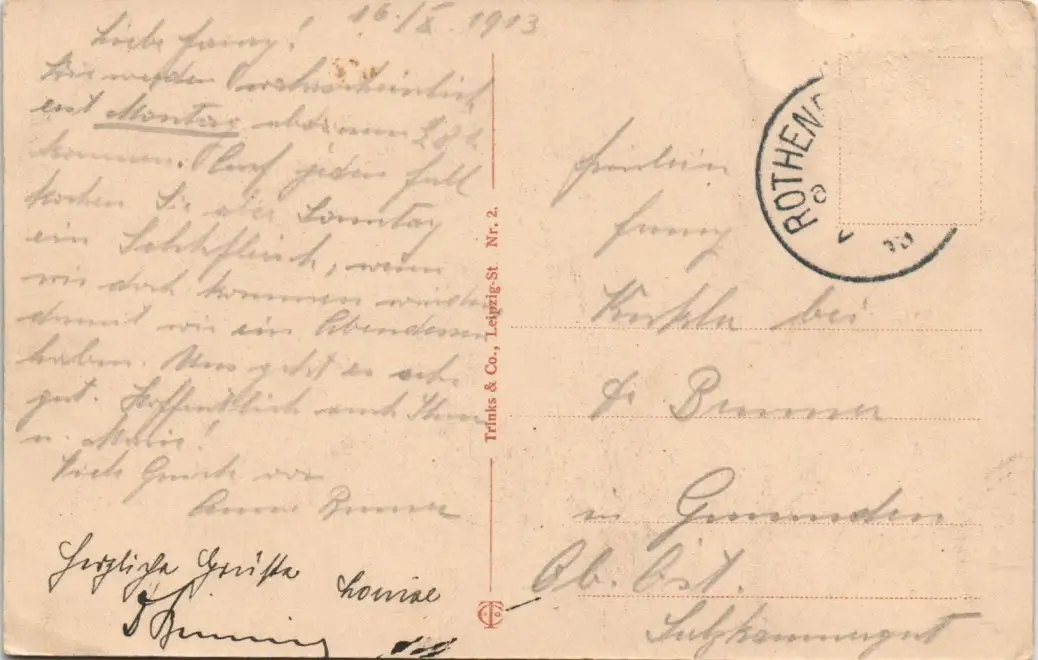 16./X. 1913
Liebe Fanny!
Wir werden wahrscheinlich
erst Montag abd
kommen. Auf jeden Fall
kochen Sie aber Sonntag
ein Selchfleisch, wenn
wir doch kommen würden
damit wir ein Abendessen
haben. Uns geht es sehr
gut. Hoffentlich auch Ihnen
u. Marie!
Viele Grüsse von
Anna Brunner
Herzliche Grüsse
Louise
Trinks & Co., Leipzig-St Nr. 2.
ROTHEN
Fräulein
Fanny
bei
Dr Brunner
in Gmunden
Ob. Öst.
Salzkammergut